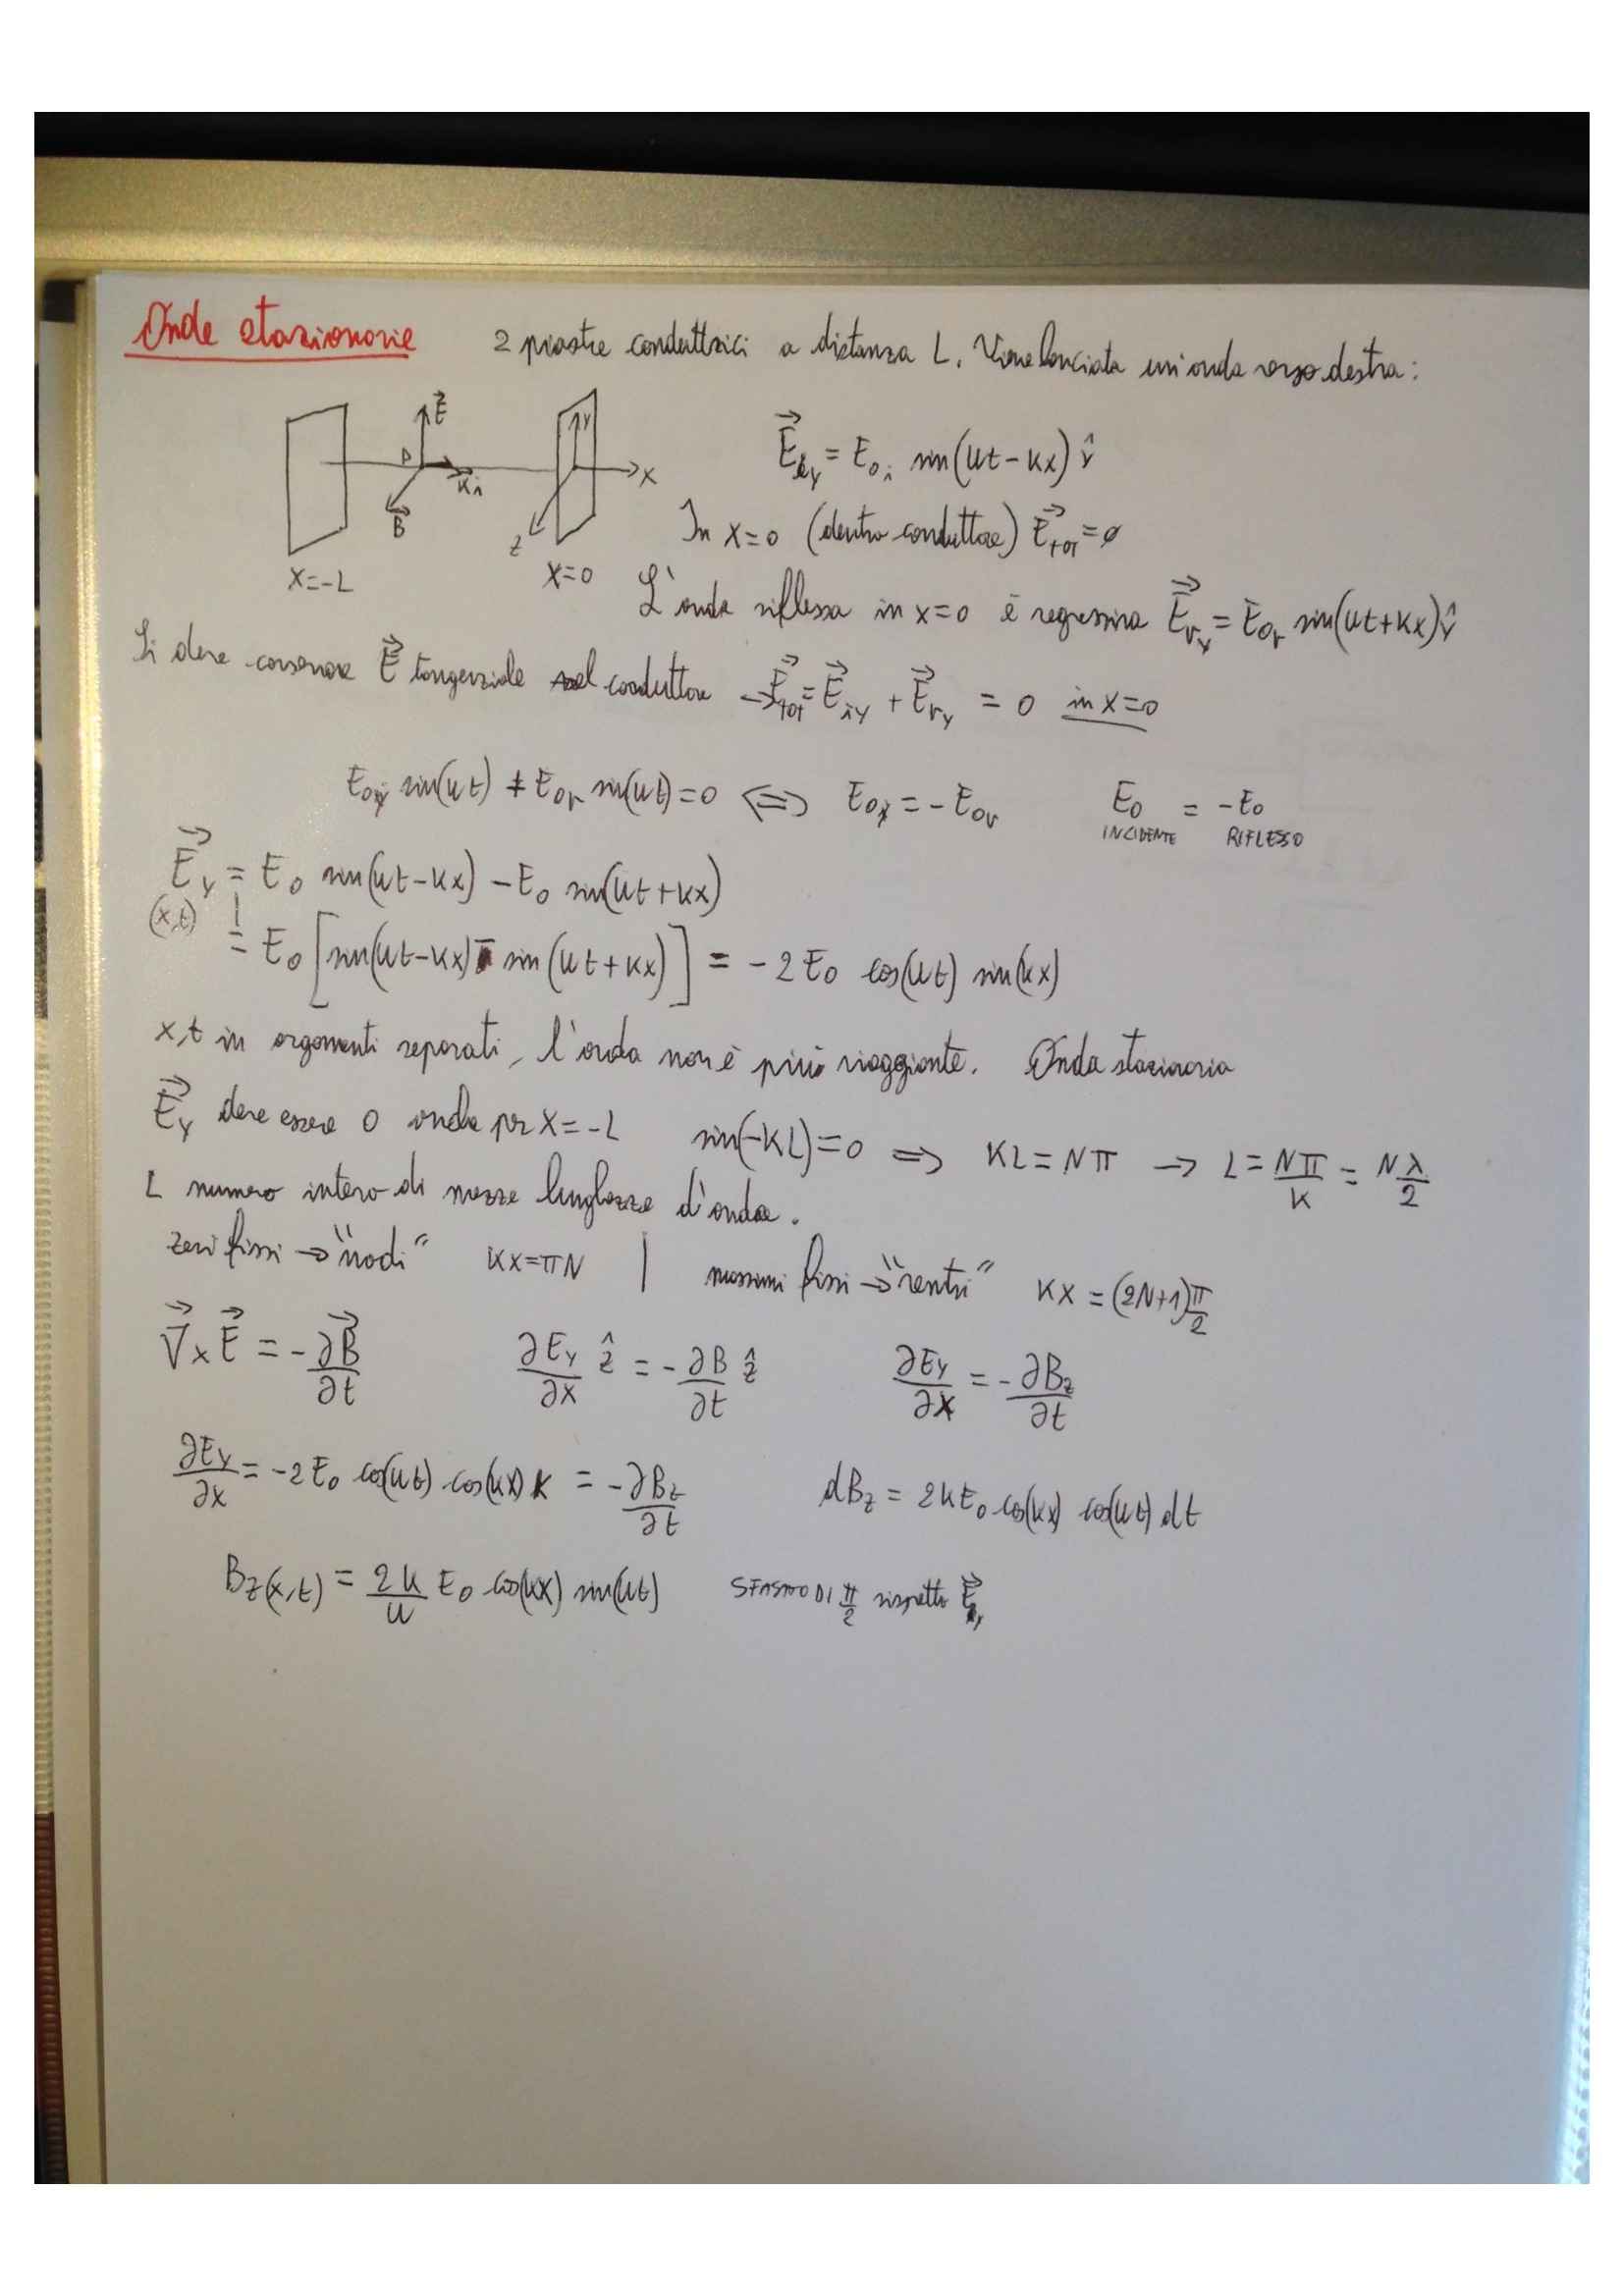 Onde stazionarie 2 piastre conduttrici a distanza L. Viene lanciata un'onda verso destra:
E⃗ B⃗ K⃗i P Y X Z
X=-L X=0
E⃗iy = E₀i sin(ωt-kx) ŷ
In x=0 (dentro conduttore) E⃗TOT = ∅
L'onda riflessa in x=0 è regressiva E⃗ry = E₀r sin(ωt+kx) ŷ
Si deve conservare E⃗ tangenziale nel conduttore → E⃗TOT = E⃗iy + E⃗ry = 0 in x=0
E₀i sin(ωt) + E₀r sin(ωt) = 0 ⟺ E₀i = -E₀r E₀ INCIDENTE = -E₀ RIFLESSO
E⃗y (x,t) = E₀ sin(ωt-kx) - E₀ sin(ωt+kx)
= E₀ [sin(ωt-kx) - sin(ωt+kx)] = -2E₀ cos(ωt) sin(kx)
x,t in argomenti separati, l'onda non è più viaggiante. Onda stazionaria
E⃗y deve essere 0 anche per x=-L sin(-KL)=0 ⟹ KL = Nπ → L = Nπ/K = Nλ/2
L numero intero di mezze lunghezze d'onda.
zeri fissi → "nodi" KX=πN | massimi fissi → "ventri" KX = (2N+1)π/2
∇⃗×E⃗ = -∂B⃗/∂t ∂Ey/∂x ẑ = -∂B/∂t ẑ ∂Ey/∂x = -∂Bz/∂t
∂Ey/∂x = -2E₀ cos(ωt) cos(kx) k = -∂Bz/∂t dBz = 2kE₀ cos(kx) cos(ωt) dt
Bz(x,t) = 2k/ω E₀ cos(kx) sin(ωt) SFASATO DI π/2 rispetto E⃗y